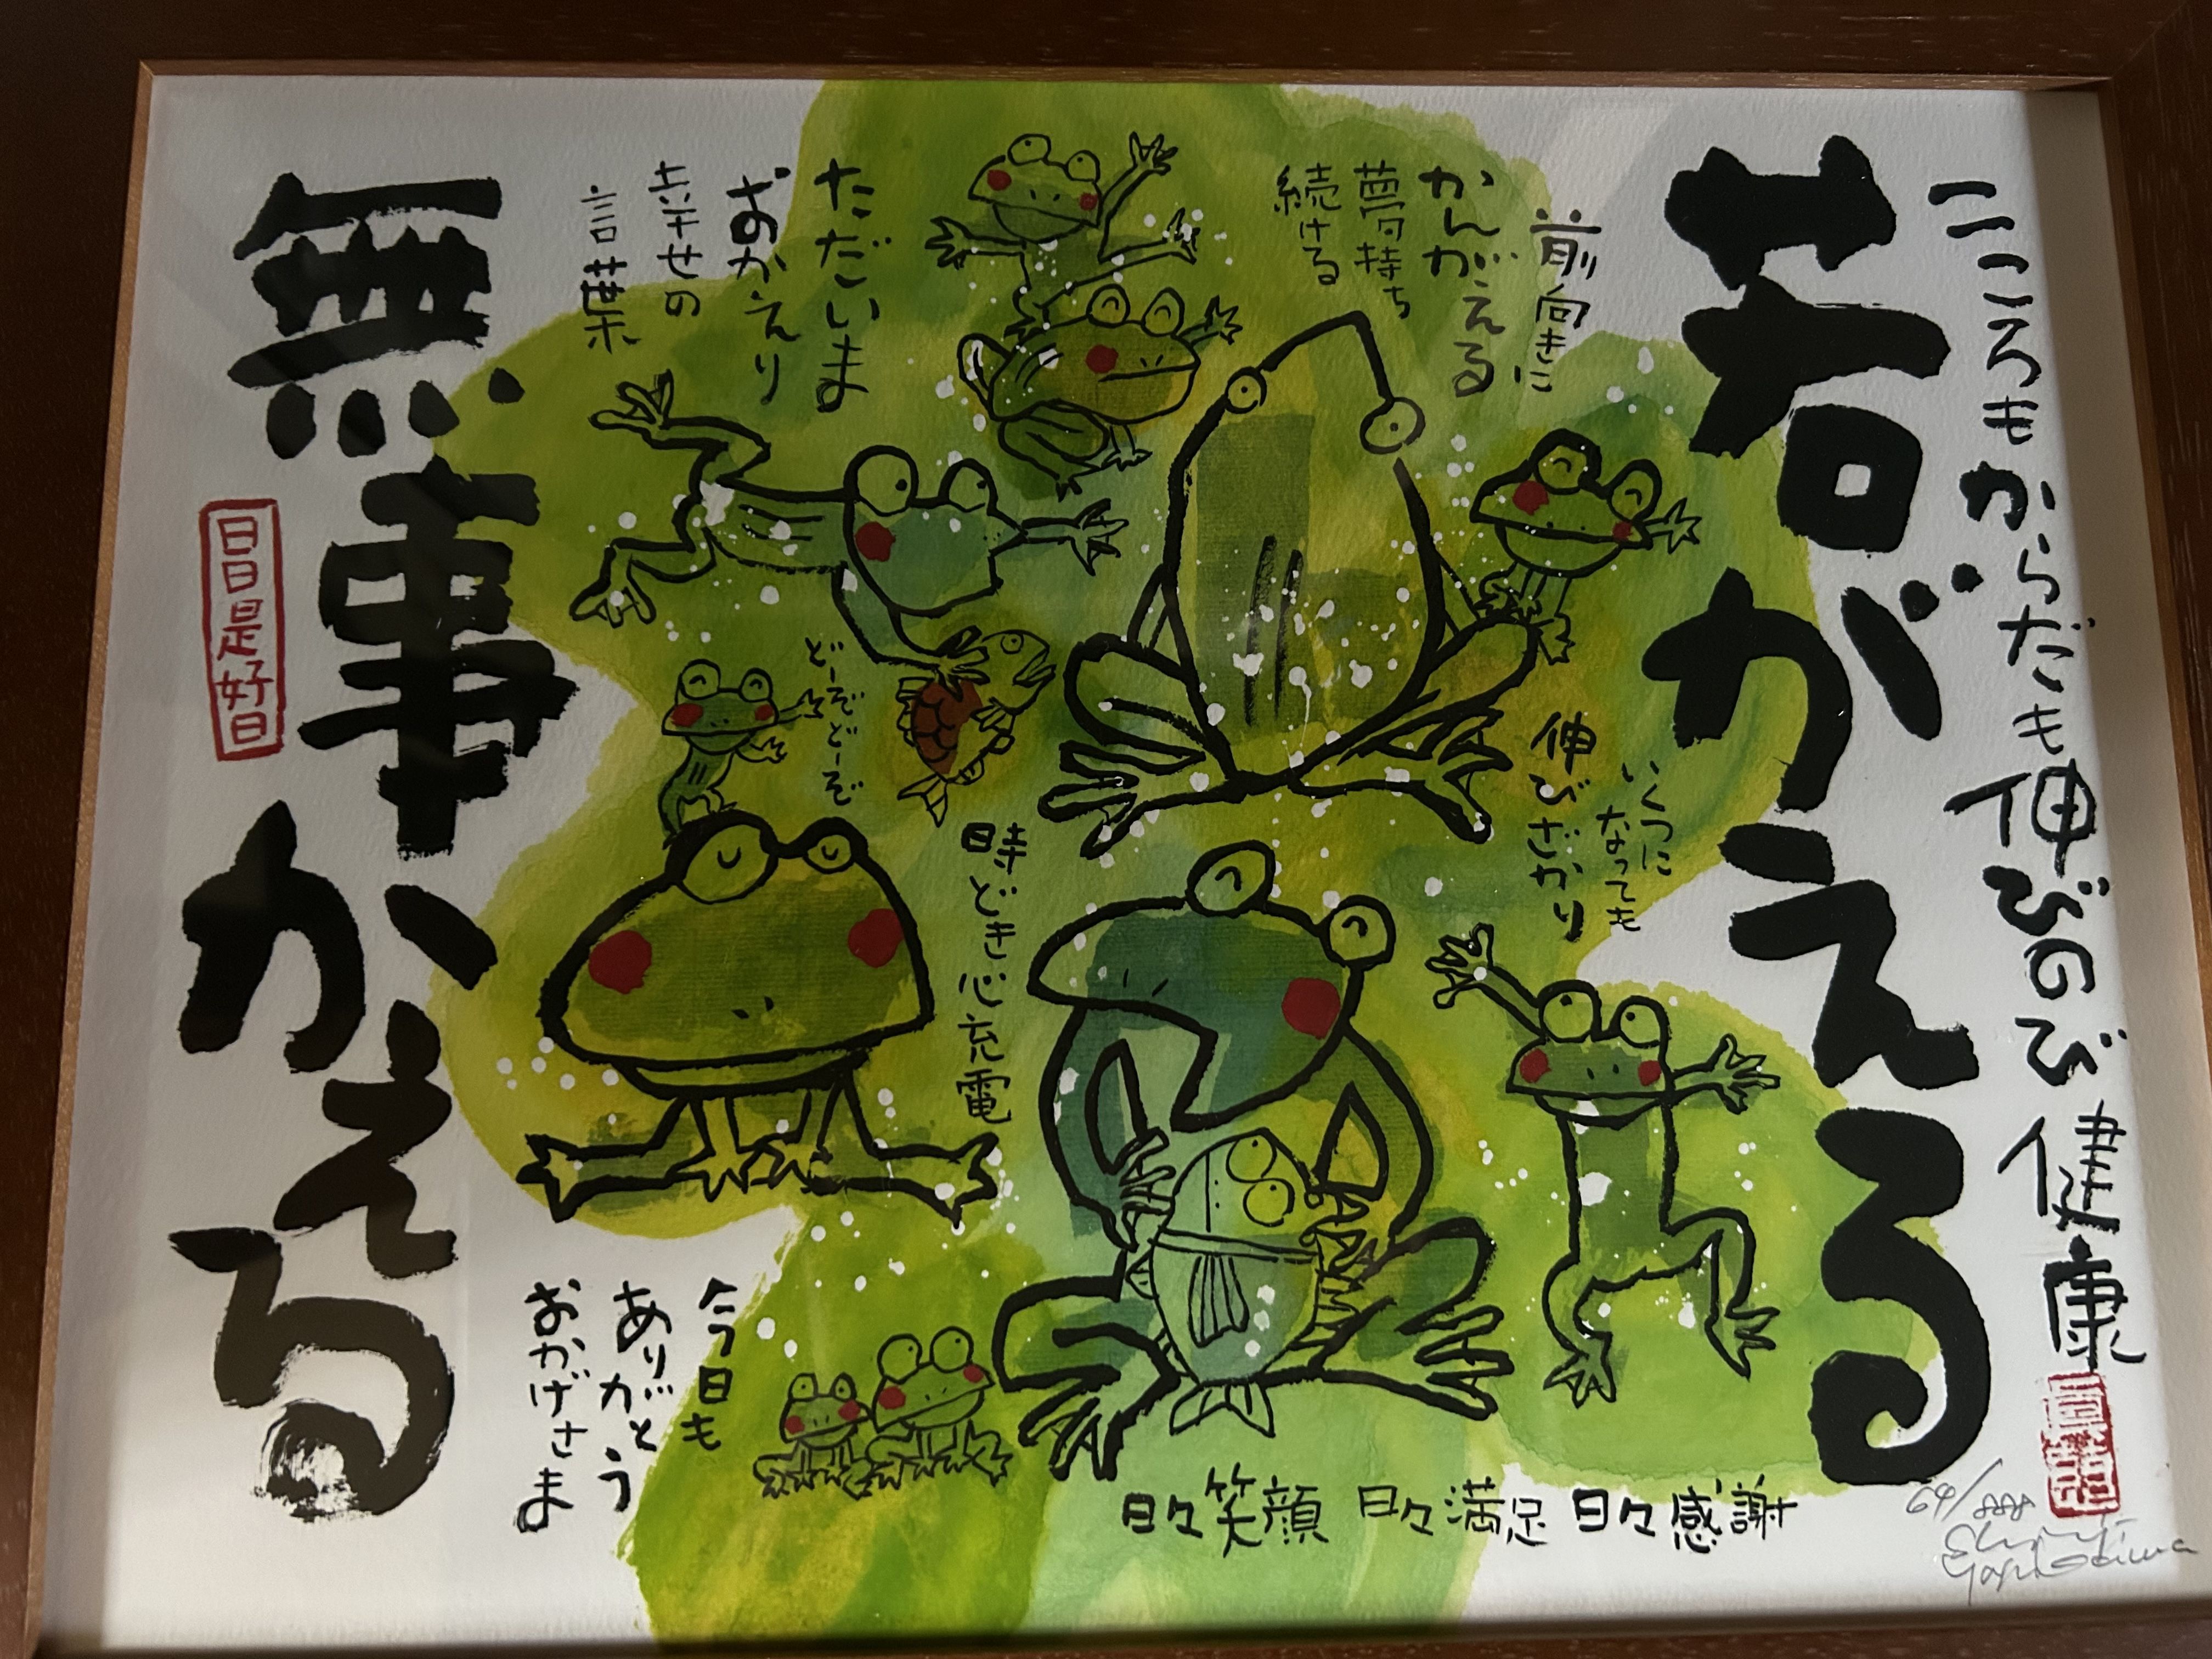 こころもからだも伸びのび健康
若がえる
前向きに
かんがえる
夢持ち
続ける
いくつに
なっても
伸びざかり
ただいま
おかえり
幸せの
言葉
どーぞどーぞ
時どき心充電
無事かえる
日日是好日
今日も
ありがとう
おかげさま
日々笑顔 日々満足 日々感謝
64/888